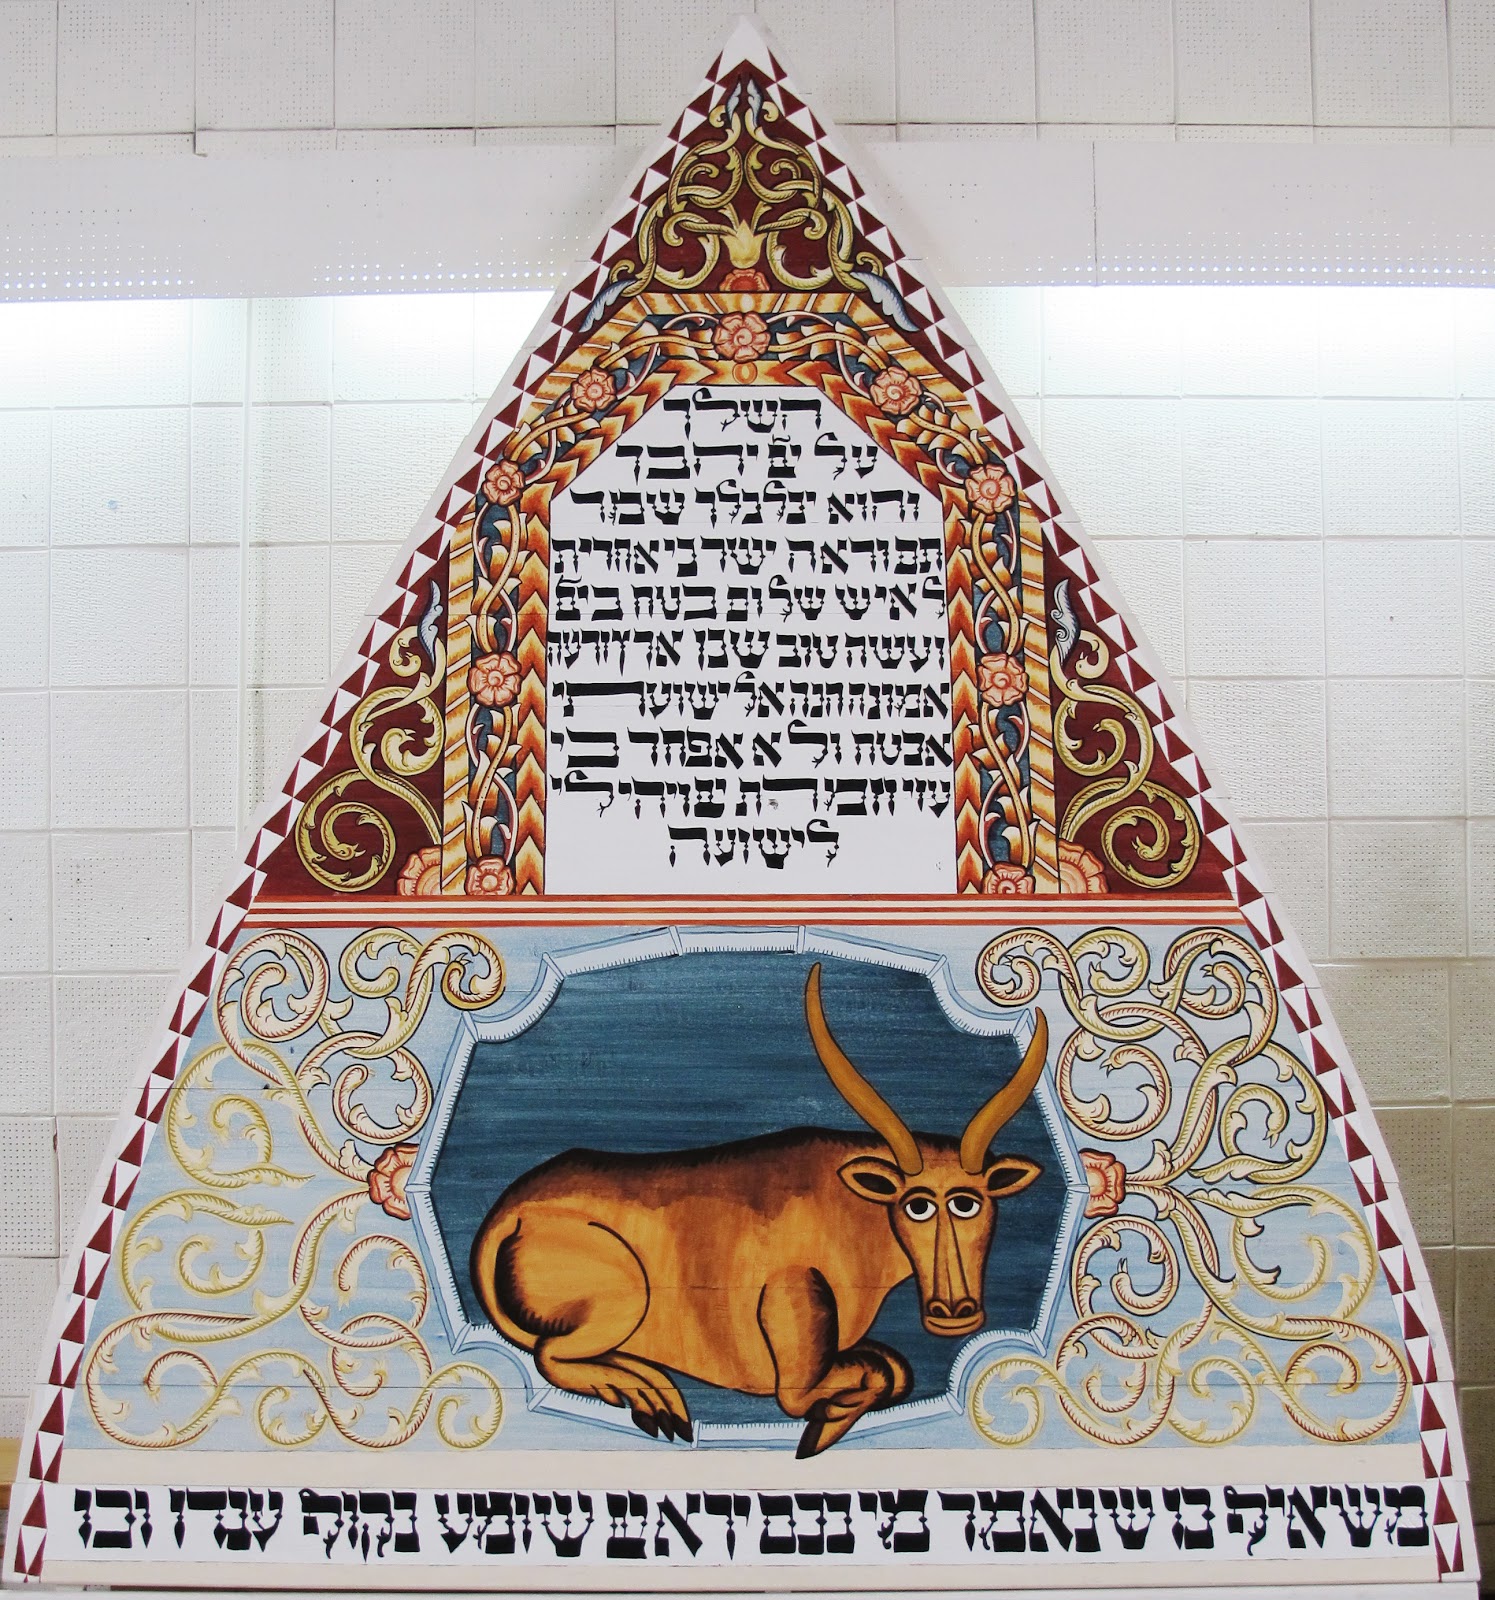 השלך
על יי יהבך
והוא יכלכלך שמר
תם וראה ישר כי אחרית
לאיש שלום בטח ביי
ועשה טוב שכן ארץ ורעה
אמונה הנה אל ישועתי
אבטח ולא אפחד כי
עזי וזמרת יי ויהי לי
לישועה
שנאמר מי בכם ירא יי שומע בקול עבדו וכו